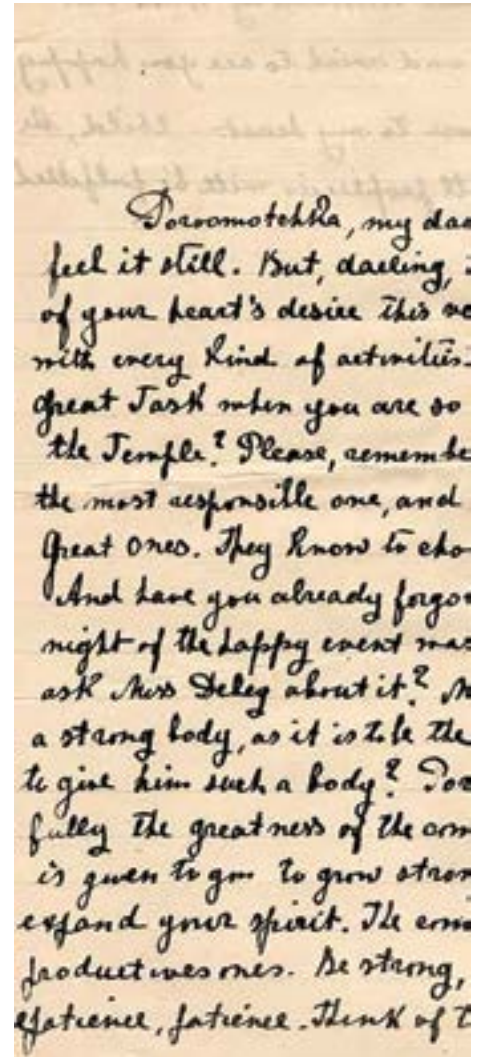 Poroomotchka, my da
feel it still. But, daeling,
of your heart's desire this
with every kind of activities.
great Task when you are so
the Temple? Please, remembe
the most responsible one, and
Great Ones. They know to cho
And have you already forgo
night of the happy event was
ask Miss Deley about it?
a strong body, as it is to be the
to give him such a body? Por
fully the greatness of the com
is given to you to grow stron
expand your spirit. The com
productives ones. Be strong,
patience, patience. Think of t